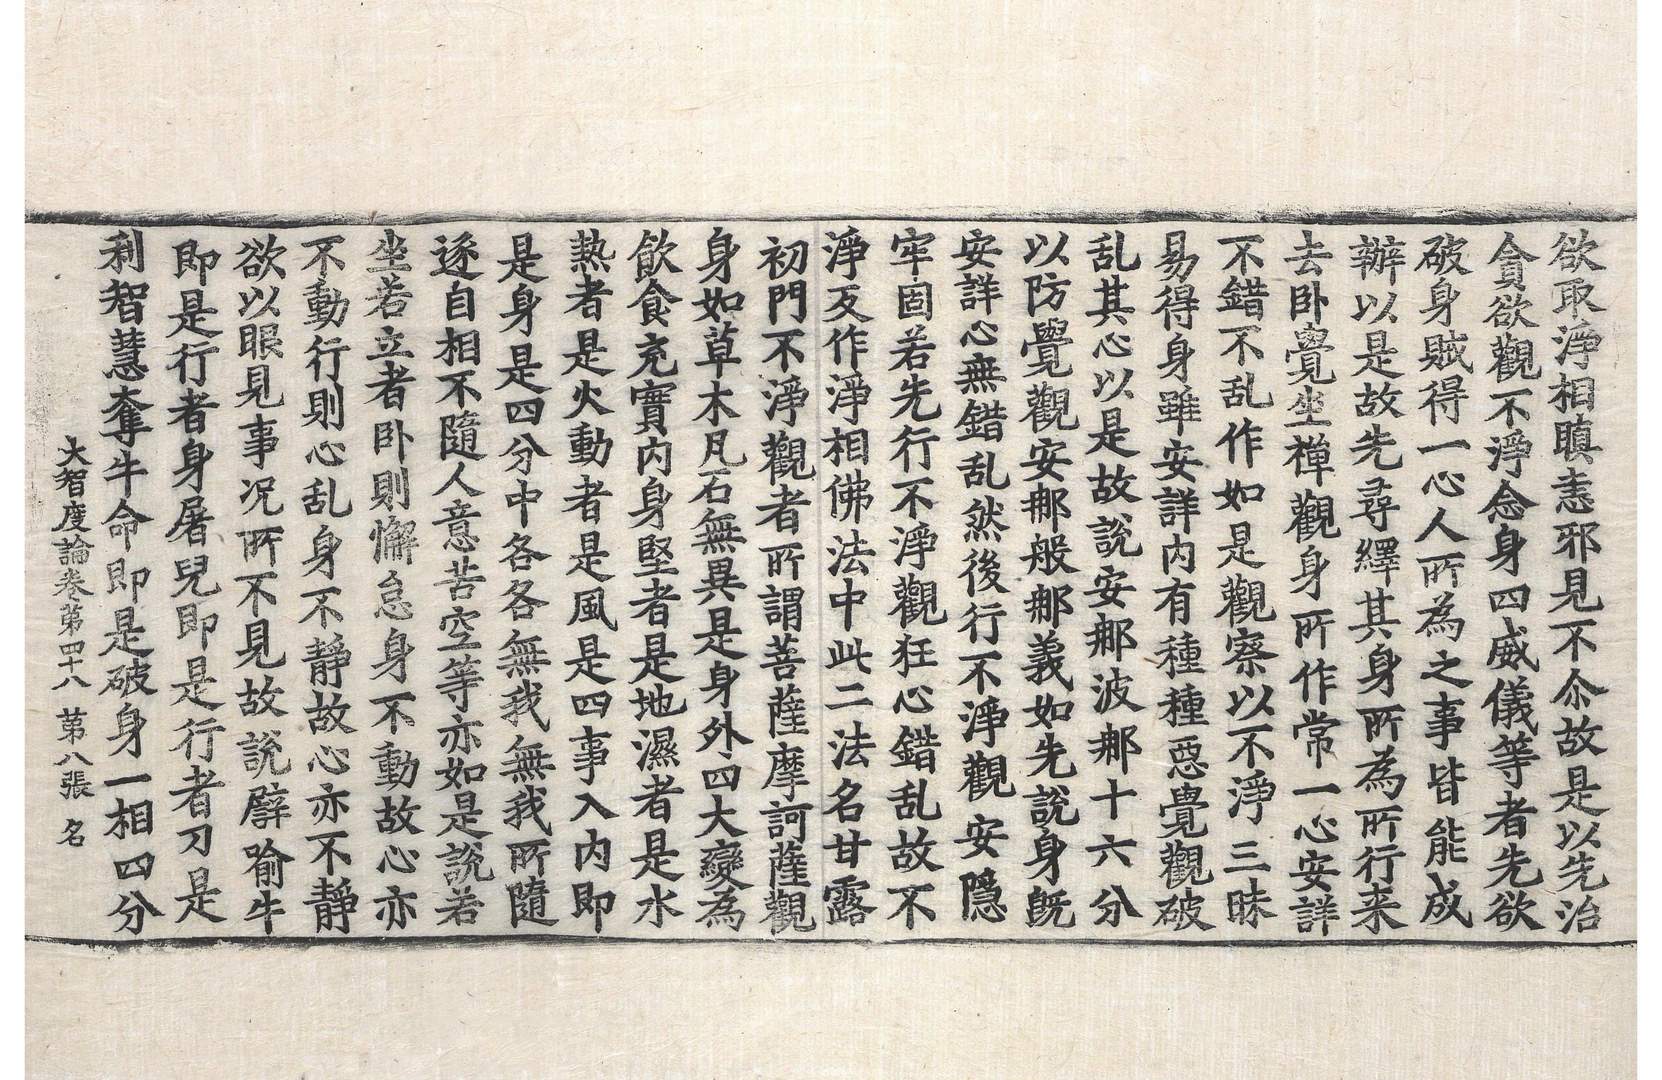 欲取淨相瞋恚邪見不尒故是以先治
貪欲觀不淨念身四威儀等者先欲
破身賊得一心人所為之事皆能成
辦以是故先尋繹其身所為所行来
去卧覺坐禪觀身所作常一心安詳
不錯不乱作如是觀察以不淨三昧
易得身雖安詳内有種種惡覺觀破
乱其心以是故說安那波那十六分
以防覺觀安那般那義如先說身旣
安詳心無錯乱然後行不淨觀安隱
牢固若先行不淨觀狂心錯乱故不
淨反作淨相佛法中此二法名甘露
初門不淨觀者所謂菩薩摩訶薩觀
身如草木凡石無異是身外四大變為
飲食充實内身堅者是地濕者是水
熱者是火動者是風是四事入内即
是身是四分中各各無我無我所隨
逐自相不隨人意苦空等亦如是說若
坐若立者卧則懈怠身不動故心亦
不動行則心乱身不靜故心亦不靜
欲以眼見事况所不見故說譬喻牛
即是行者身屠兒即是行者刀是
利智慧奪牛命即是破身一相四分
大智度論卷第四十八 第八張 名